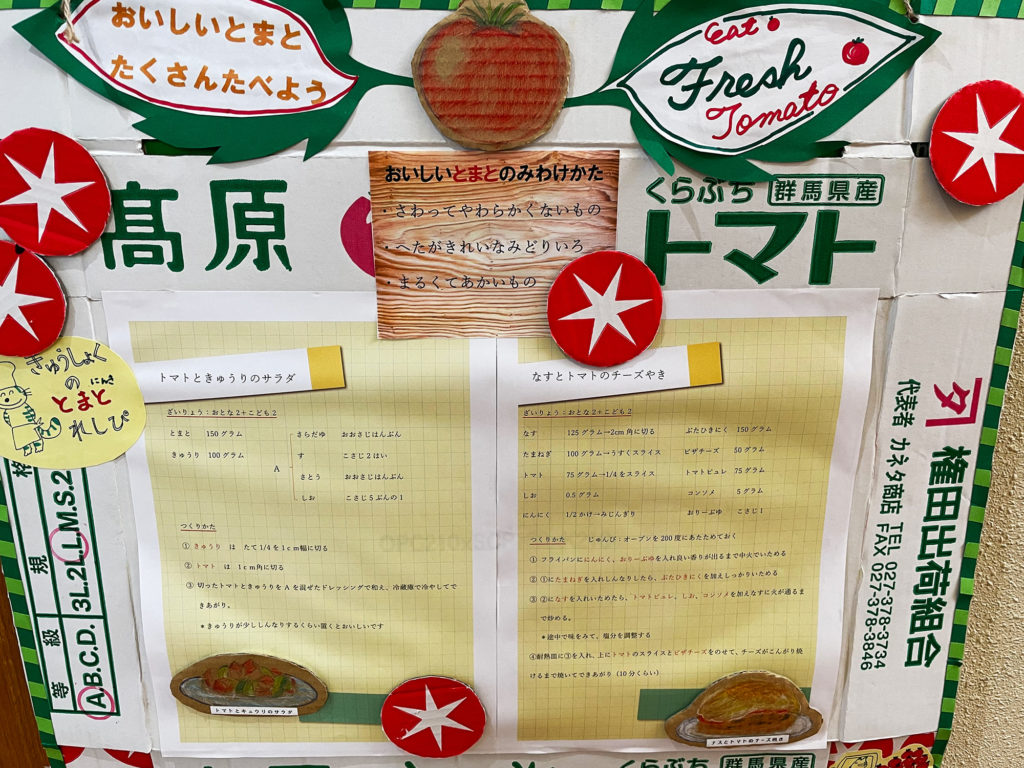 おいしいとまと
たくさんたべよう
Eat
Fresh
Tomato
髙原
くらぶち 群馬県産
トマト
おいしいとまとのみわけかた
・さわってやわらかくないもの
・へたがきれいなみどりいろ
・まるくてあかいもの
きゅうしょく
の にんき
とまと
れしぴ
トマトときゅうりのサラダ
ざいりょう：おとな2+こども2
とまと 150グラム
きゅうり 100グラム
A
さらだゆ おおさじはんぶん
す こさじ2はい
さとう おおさじはんぶん
しお こさじ5ぶんの1
つくりかた
① きゅうり は たて1/4を1cm幅に切る
② トマト は 1cm角に切る
③ 切ったトマトときゅうりをAを混ぜたドレッシングで和え、冷蔵庫で冷やしてで
きあがり。
*きゅうりが少ししんなりするくらい置くとおいしいです
トマトとキュウリのサラダ
なすとトマトのチーズやき
ざいりょう：おとな2+こども2
なす 125グラム→2cm角に切る
たまねぎ 100グラム→うすくスライス
トマト 75グラム→1/4をスライス
しお 0.5グラム
にんにく 1/2かけ→みじんぎり
ぶたひきにく 150グラム
ピザチーズ 50グラム
トマトピュレ 75グラム
コンソメ 5グラム
おりーぶゆ こさじ1
つくりかた じゅんび：オーブンを200度にあたためておく
① フライパンににんにく、おりーぶゆを入れ良い香りが出るまで中火でいためる
② ①にたまねぎを入れしんなりしたら、ぶたひきにくを加えしっかりいためる
③ ②になすを入れいためたら、トマトピュレ、しお、コンソメを加えなすに火が通るま
で炒める。
*途中で味をみて、塩分を調整する
④耐熱皿に③を入れ、上にトマトのスライスとピザチーズをのせて、チーズがこんがり焼
けるまで焼いてできあがり（10分くらい）
ナスとトマトのチーズ焼き
格
規
3L.2L.L.M.S.2
級
等
A.B.C.D.
タ 権田出荷組合
代表者 カネタ商店 TEL 027-378-3734
FAX 027-378-3846
くらぶち 群馬県産